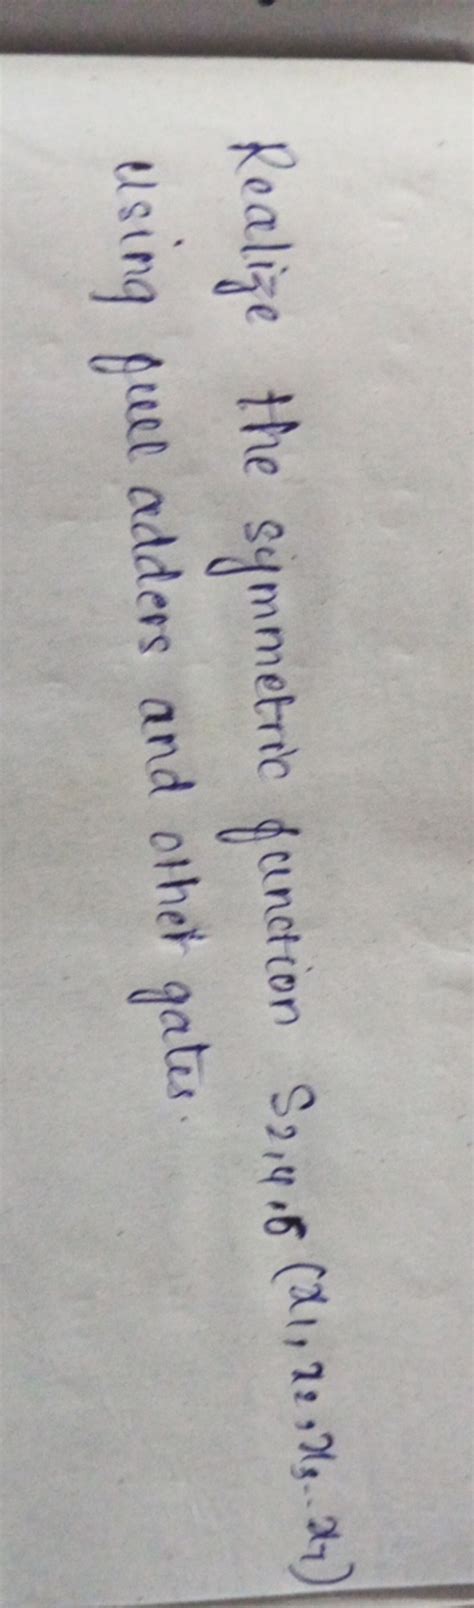 Realize the symmetric function S2,4,6 (x1, x2, x3.. x7)
using full adders and other gates.